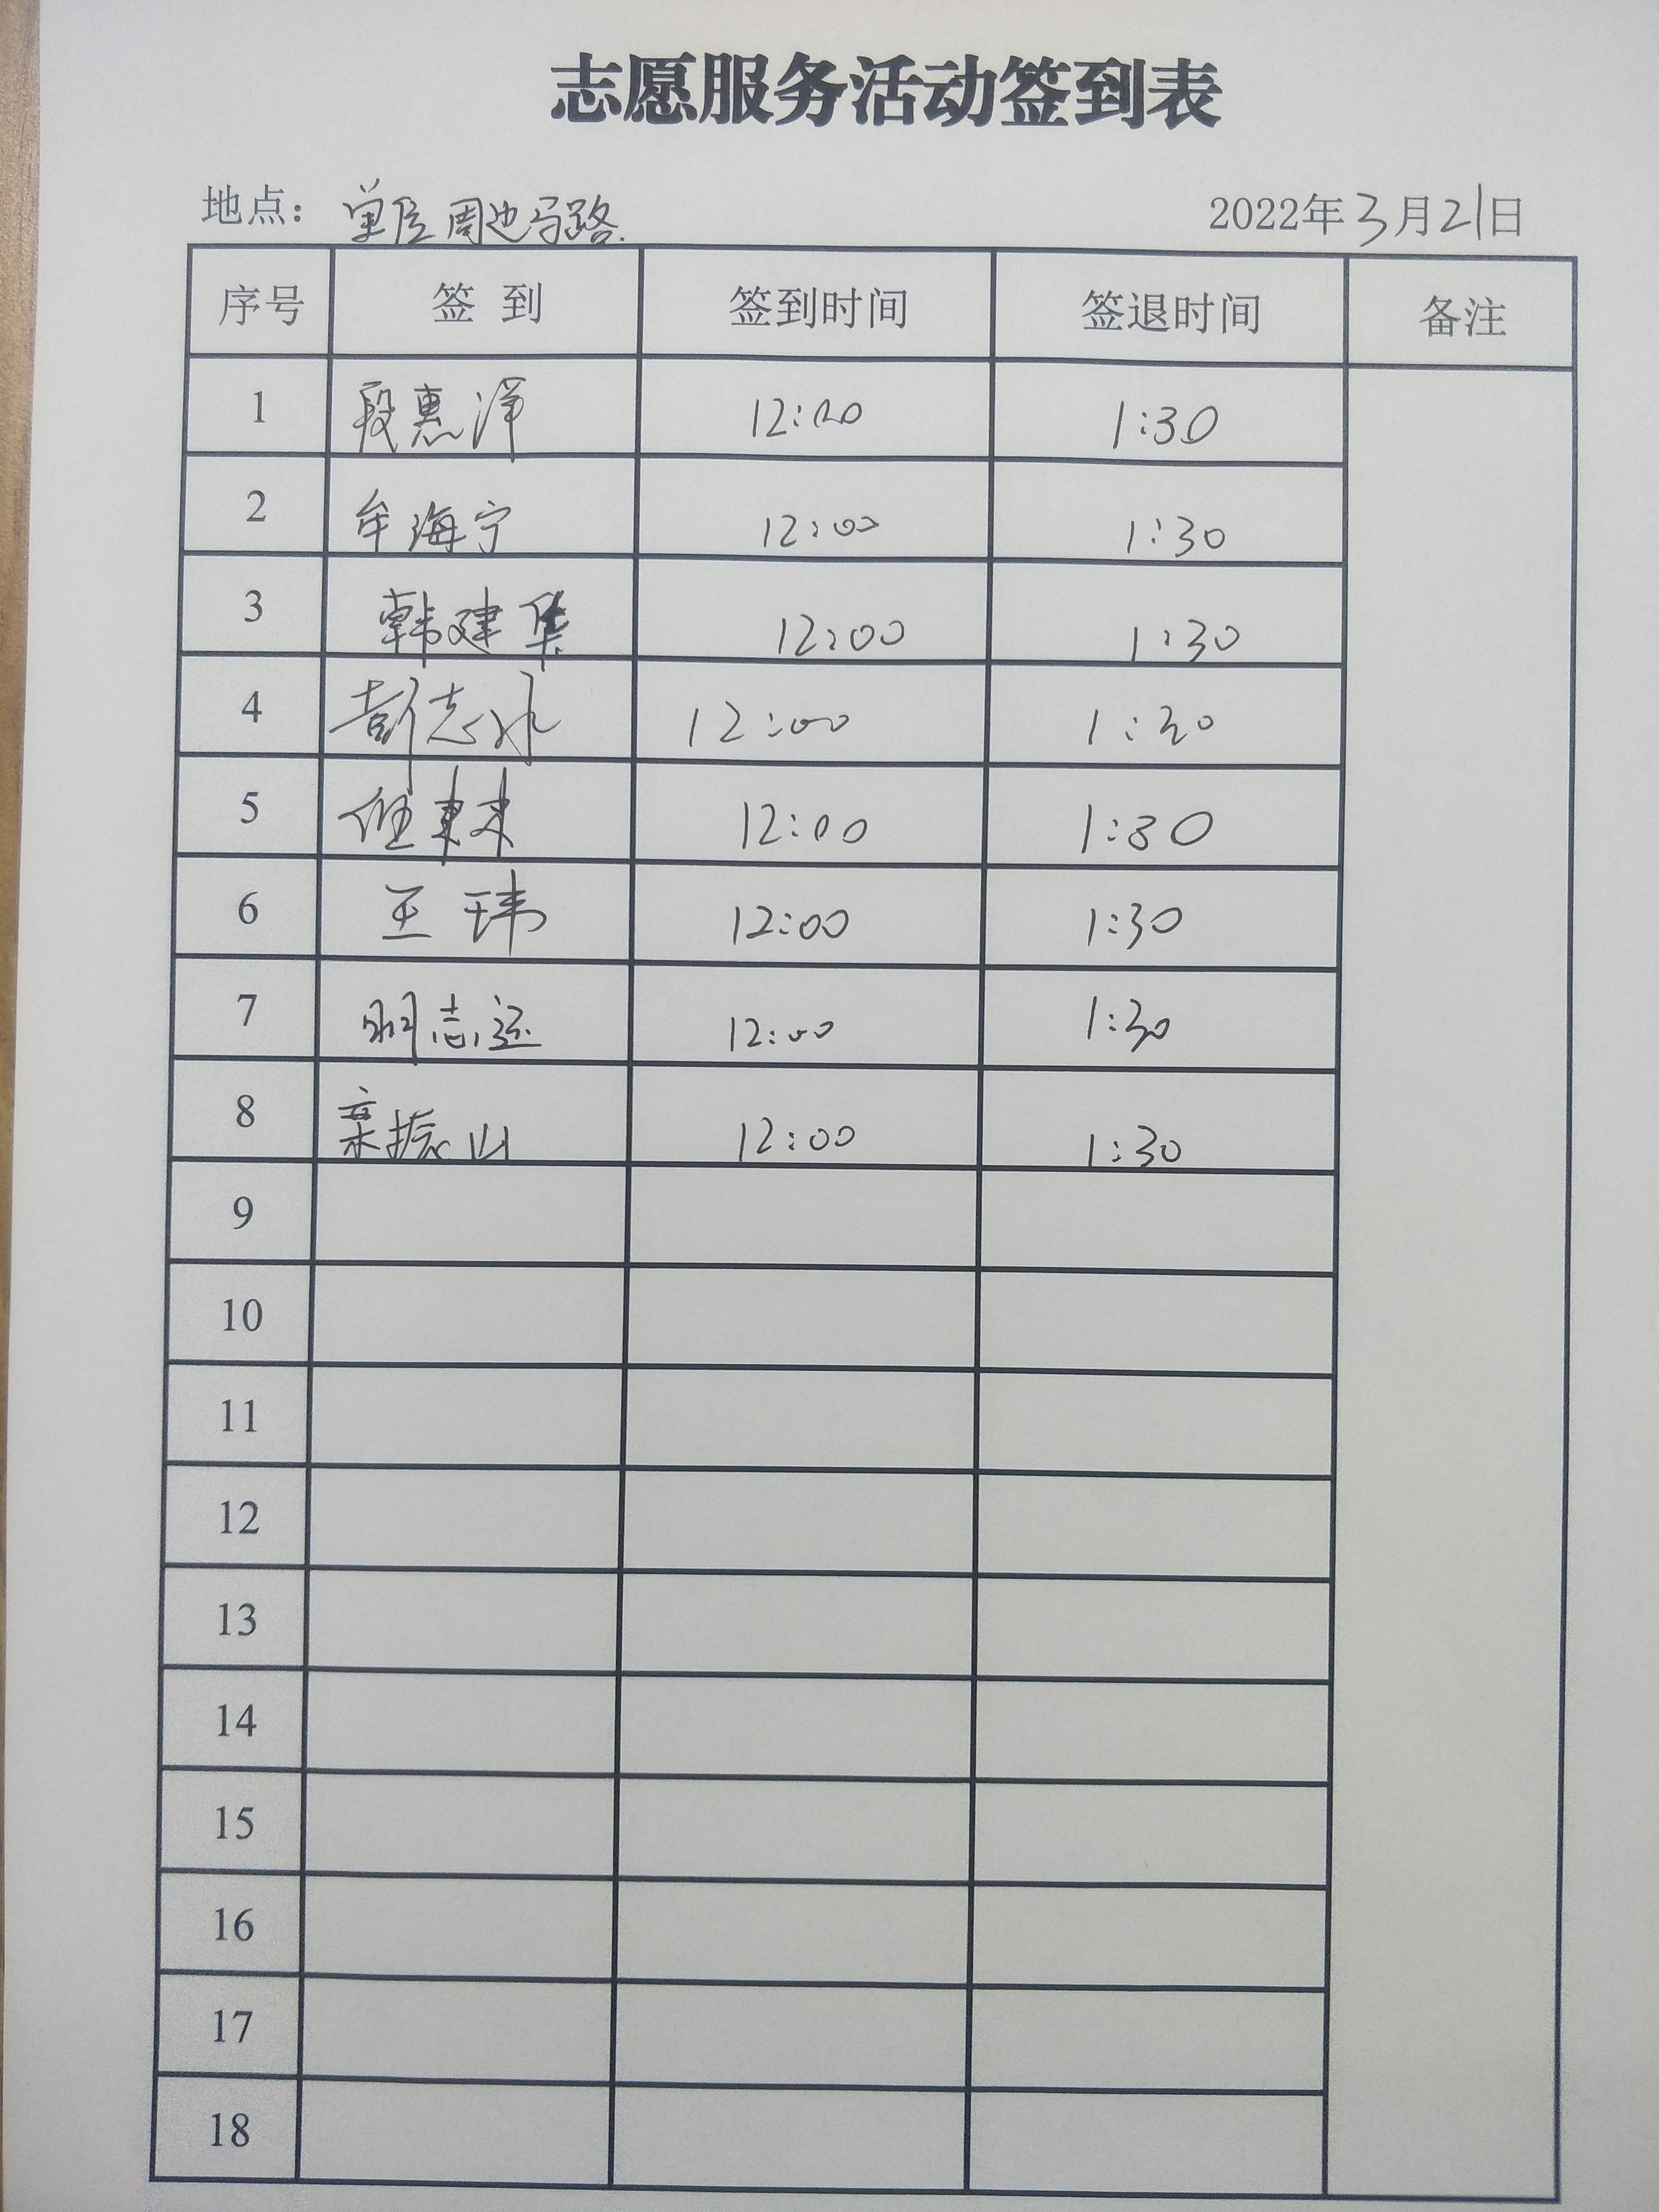 志愿服务活动签到表
地点：单位周边马路. 2022年3月21日
序号 签到 签到时间 签退时间 备注
1 段惠泽 12:00 1:30
2 牟海宁 12:00 1:30
3 韩建集 12:00 1:30
4 彭志冰 12:00 1:30
5 12:00 1:30
6 王玮 12:00 1:30
7 明志远 12:00 1:30
8 栾振山 12:00 1:30
9
10
11
12
13
14
15
16
17
18